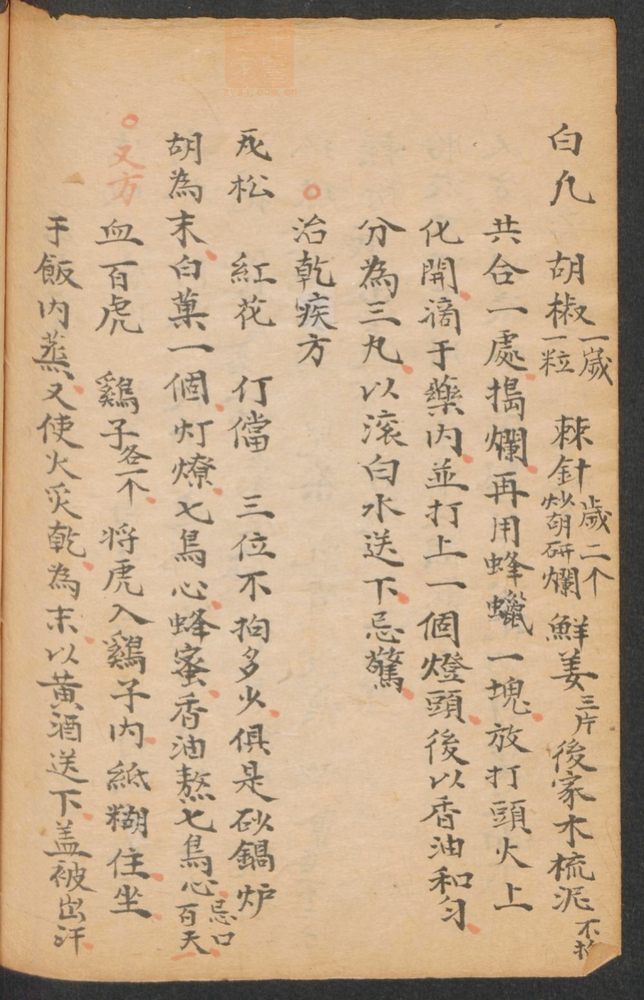 白凡 胡椒一歲一粒 棘針歲二个炒胡研爛 鮮姜三片 後家木梳泥不拘
共合一處搗爛再用蜂蠟一塊放打頭火上
化開滴于藥內並打上一個燈頭後以香油和匀
分為三丸以滚白水送下忌驚
○治乾疾方
瓦松 紅花 仃儅 三位不拍多少俱是砂鍋炉
胡為末白菓一個灯燎七鳥心蜂蜜香油熬七鳥心忌口百天
○又方
血百虎 鷄子各一个 将虎入鷄子内紙糊住坐
于飯内蒸又使火炙乾為末以黄酒送下盖被出汗